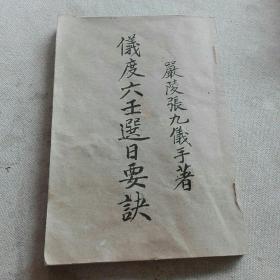 嚴陵張九儀手著
儀度六壬選日要訣